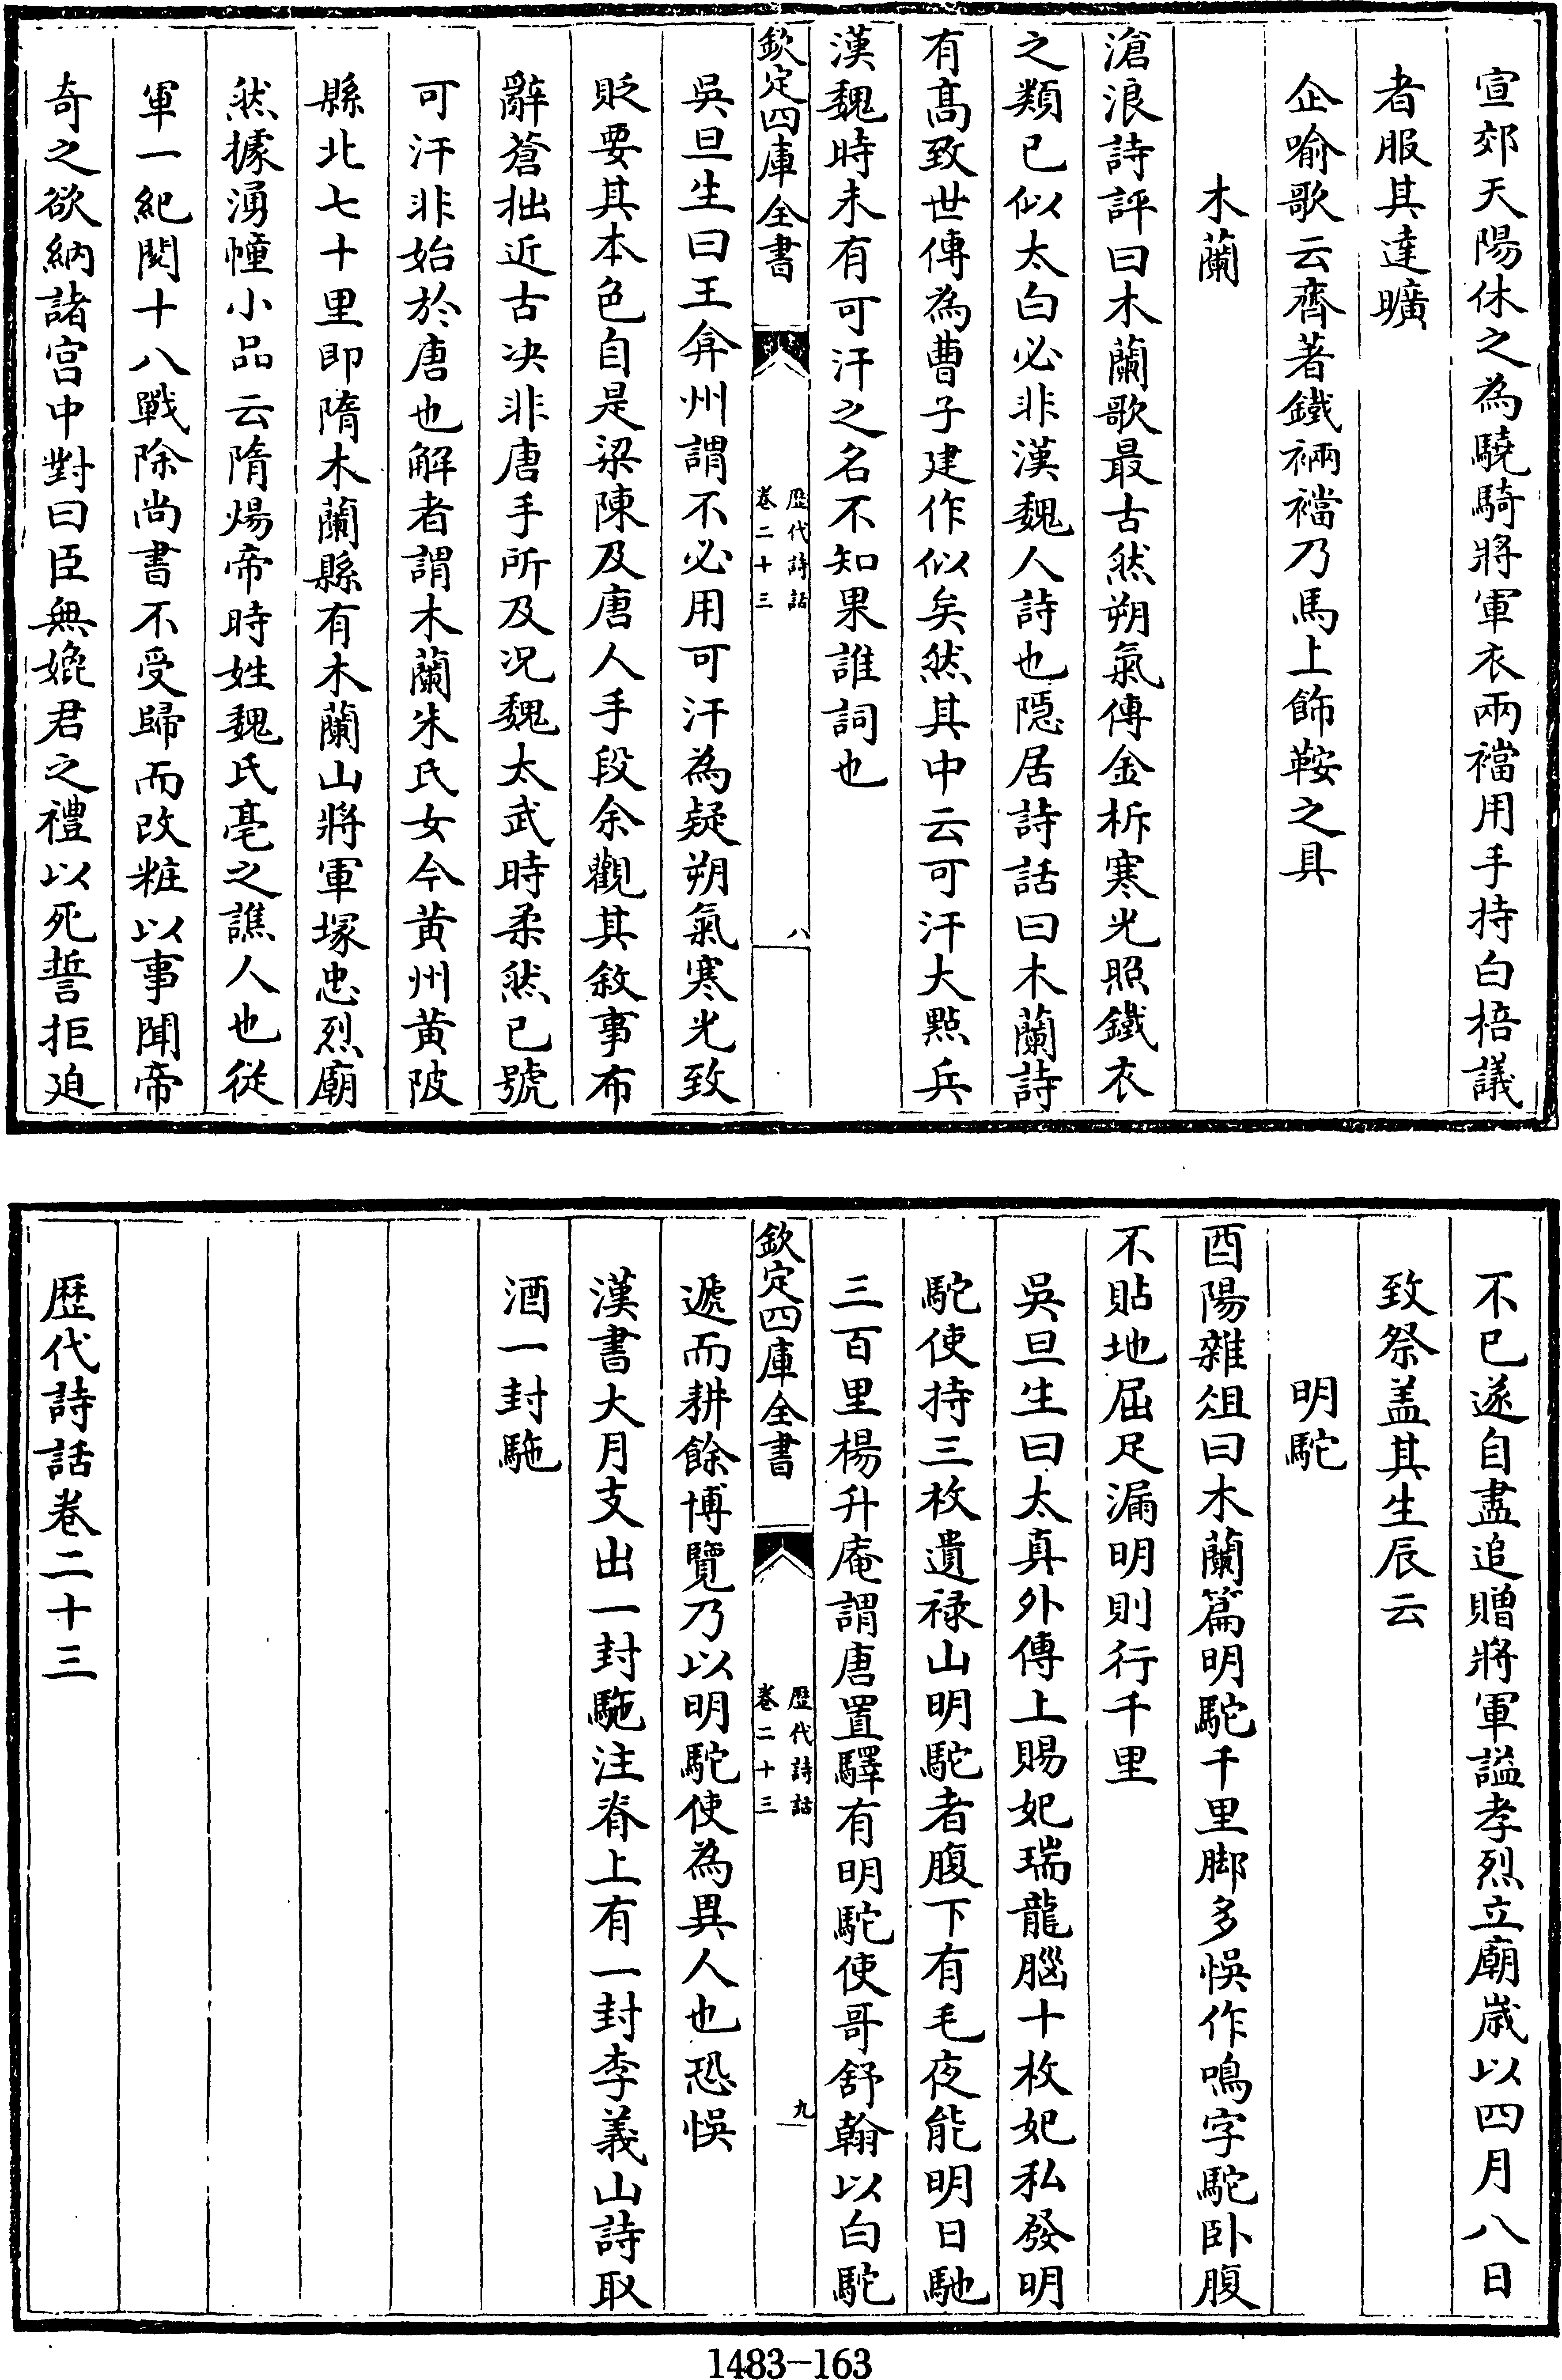 宣郊天陽休之為驍騎將軍衣兩襠用手持白棓議
者服其達曠
企喻歌云齊著鐵裲襠乃馬上飾鞍之具
木蘭
滄浪詩評曰木蘭歌最古然朔氣傳金柝寒光照鐵衣
之類已似太白必非漢魏人詩也隱居詩話曰木蘭詩
有髙致世傳為曹子建作似矣然其中云可汗大㸃兵
漢魏時未有可汗之名不知果誰詞也
欽定四庫全書
歴代詩話
卷二十三
八
吳旦生曰王弇州謂不必用可汗為疑朔氣寒光致
貶要其本色自是梁陳及唐人手段余觀其敘事布
辭蒼拙近古决非唐手所及况魏太武時柔然已號
可汗非始於唐也解者謂木蘭朱氏女今黄州黄陂
縣北七十里即隋木蘭縣有木蘭山將軍塜忠烈廟
然據湧幢小品云隋煬帝時姓魏氏亳之譙人也從
軍一紀閱十八戰除尚書不受歸而改粧以事聞帝
奇之欲納諸宫中對曰臣無媲君之禮以死誓拒迫
不已遂自盡追贈將軍謚孝烈立廟歲以四月八日
致祭盖其生辰云
明駝
酉陽雜俎曰木蘭篇明駝千里脚多悮作鳴字駝卧腹
不貼地屈足漏明則行千里
吳旦生曰太真外傳上賜妃瑞龍腦十枚妃私發明
駝使持三枚遺禄山明駝者腹下有毛夜能明日馳
三百里楊升庵謂唐置驛有明駝使哥舒翰以白駝
欽定四庫全書
歴代詩話
卷二十三
九
遞而耕餘博覽乃以明駝使為異人也恐悮
漢書大月支出一封駞注脊上有一封李義山詩取
酒一封駞
歴代詩話卷二十三
1483-163